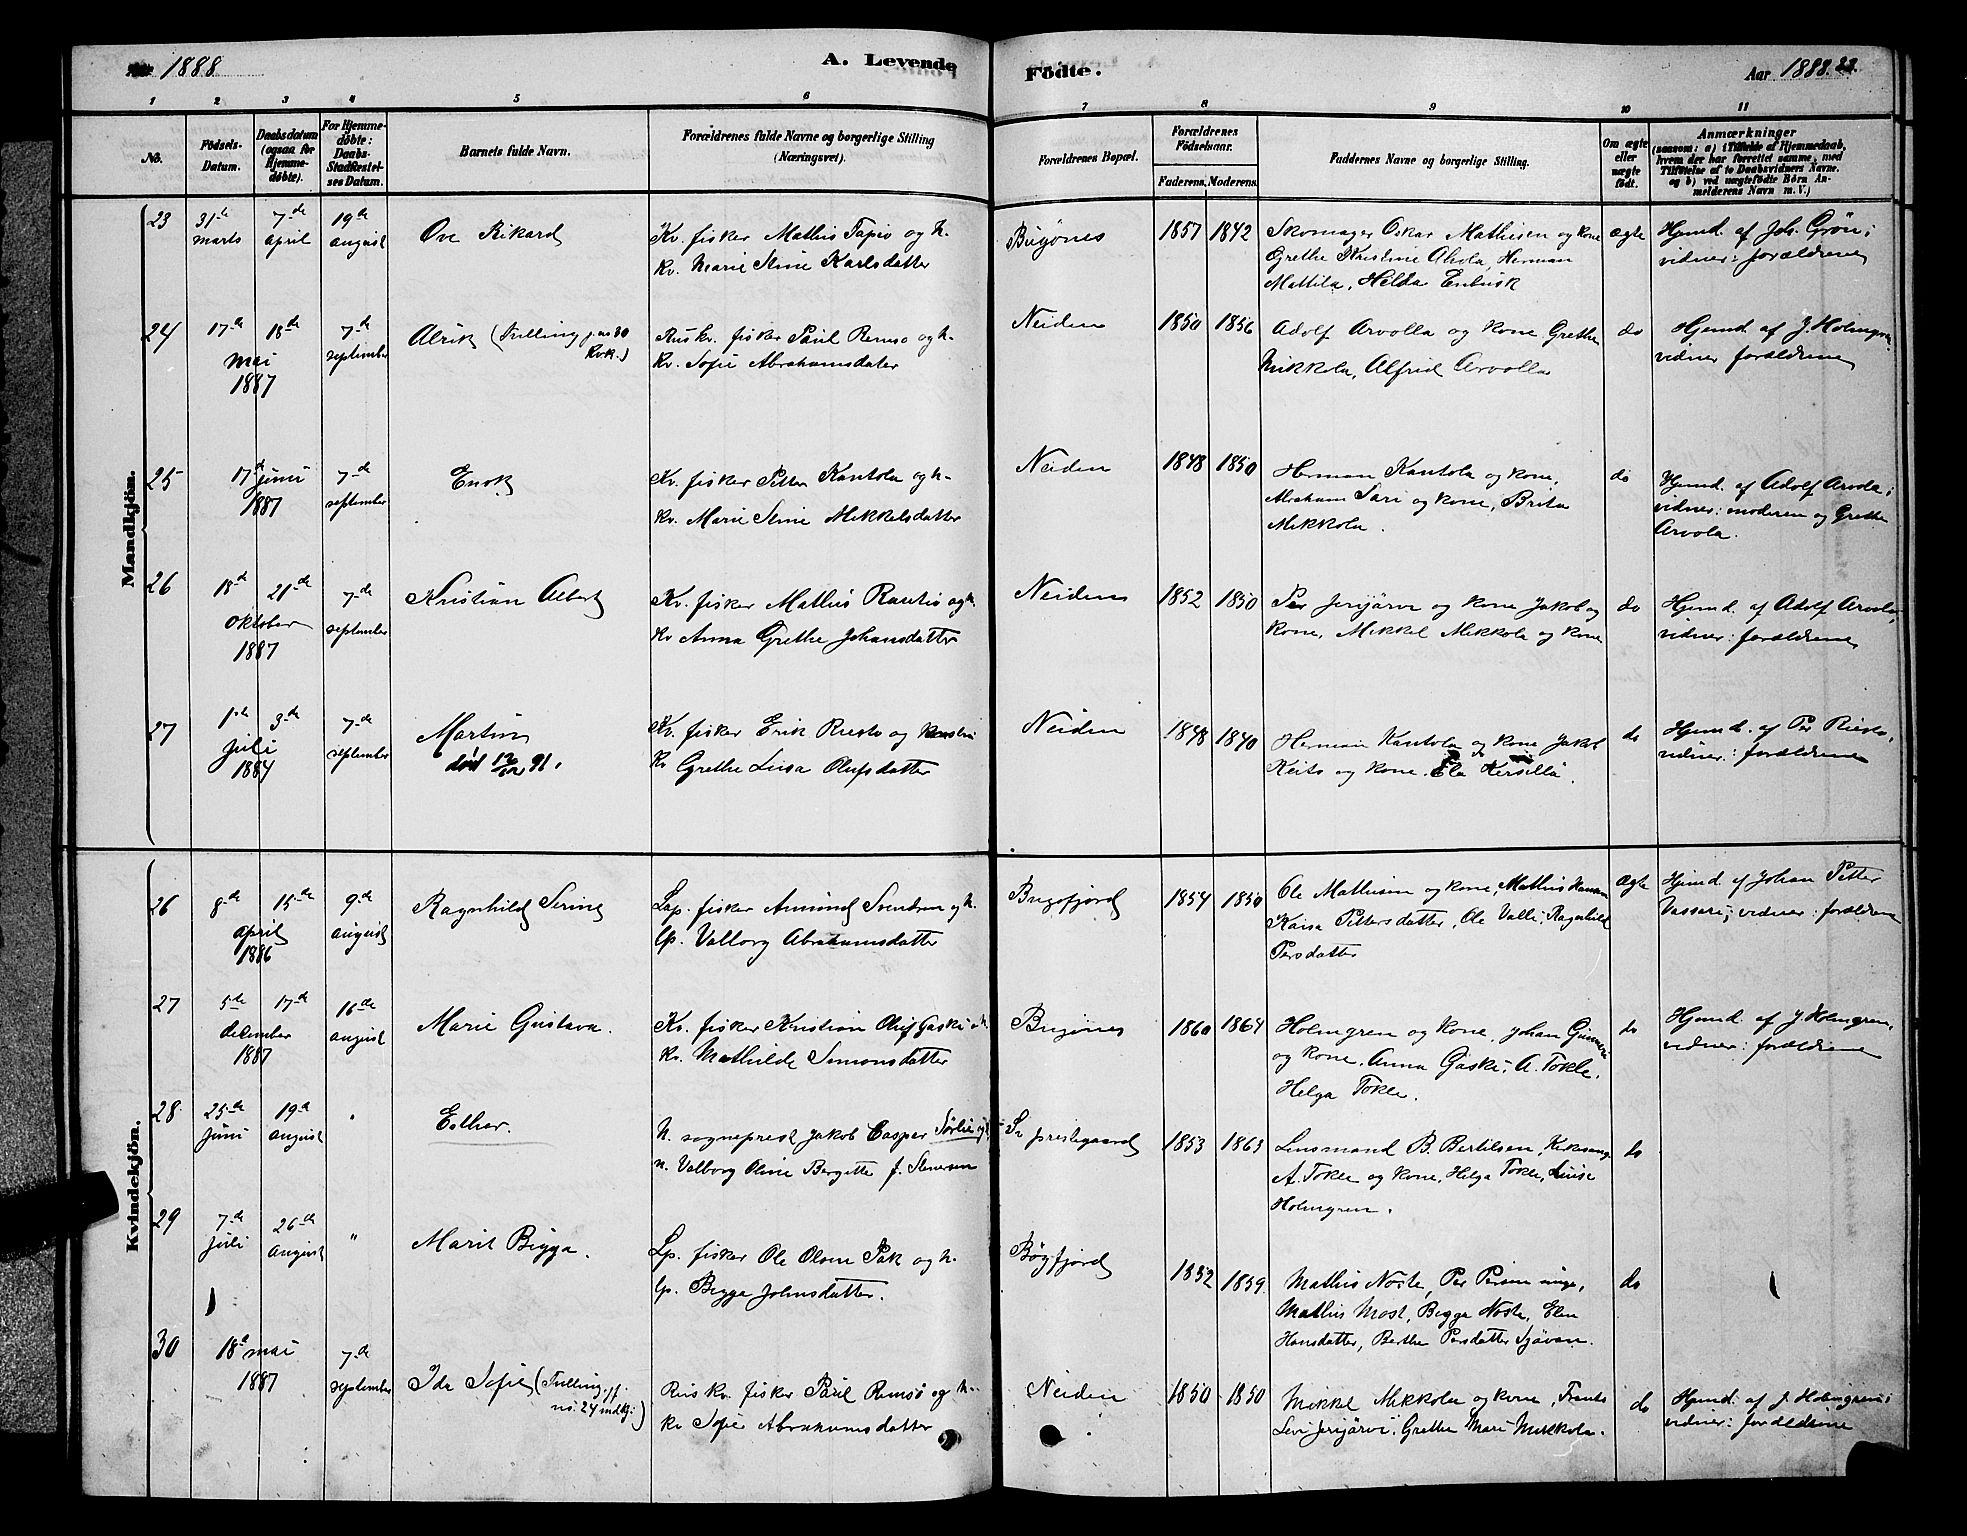 Aar 1888
A. Levende
Födte.
Aar 1888. 22.
1 2 3 4 5 6 7 8 9 10 11
No.
Födsels-
Datum.
Daabsdatum
(ogsaa for
Hjemme-
döbte).
For Hjemme-
döbte:
Daabs-
Stadfæstel-
ses Datum.
Barnets fulde Navn.
Forældrenes fulde Navne og borgerlige Stilling
(Næringsvei).
Forældrenes Bopæl.
Forældrenes
Födselsaar.
Faderens. Moderens.
Faddernes Navne og borgerlige Stilling.
Om ægte
eller
uægte
födt.
Anmærkninger
(saasom: a) i Tilfælde af Hjemmedaab,
hvem der har forrettet samme, med
Tilföielse af to Daabsvidners Navne.
og b) ved uægtefödte Börn An-
melderens Navn m. V.)
Mandkjön.
23
31te marts
7de april
19de august
Ove Rikard
Kv. fisker Mathis Tapio og h.
kv. Marie Stine Karlsdatter
Bugönes
1857 1842
Skomager Oskar Mathisen og kone
Grethe Kristine Ahola, Herman
Mattila, Hilda Enbusk
ægte
Hjemd. af Joh. Grön;
vidner: forældrene
24
17de 18de
mai
1887
7de
september
Alrik (Tvilling jvr 30
Kvk.)
Rus kv. fisker Paul Remsö og h.
kv. Sofie Abrahamsdatter
Neiden
1850 1856
Adolf Arvolla og kone Grethe
Mikkola, Alfrid Arvolla
do
Hjemd. af J. Holmgren
vidner forældrene
25
17de juni
1887
7de
september
Enok
Kv. fisker Petter Kantola og h.
kv. Marie Stine Mikkelsdatter
Neiden
1848 1850
Herman Kantola og kone,
Abraham Sari og kone, Brita
Mikkola.
do
Hjemd. af Adolf Arvola;
vidner: moderen og Grethe
Arvola.
26
18de 21de
oktober
1887
7de
september
Kristian Albert
Kv. fisker Mathis Rantio og h.
kv Anna Grethe Johansdatter
Neiden
1852 1850
Per Jerijärvi og kone Jakob og
kone, Mikkel Mikkola og kone
do
Hjemd. af Adolf Arvola,
vidner: forældrene
27
1ste 3de
juli
1884
7de
september
Martin
död 12/12 91.
Kv. fisker Erik Riesto og
kv Grethe Lusa Olufsdatter
Neiden
1848 1840
Herman Kantola og kone Jakob
Keito og kone. Ela Kersilla.
do
Hjemd. af Per Riesto,
vidner: forældrene
Kvindekjön.
26
8de 15de
april
1886
9de
august
Ragnhild Serine
Lap. fisker Amund Svendsen og h.
lp. Valborg Abrahamsdatter
Bugofjord
1854 1850
Ole Mathisen og kone, Mathis Hansen
Kaisa Pettersdatter, Ole Valli, Ragnhild
Persdatter
Ægte
Hjemd. af Johan Petter
Vasseri; vidner: forældrene
27
5de 17de
december
1887
16de
august
Marie Gustava.
Kv. fisker Kristian Oluf Gaski og h.
kv. Mathilde Simonsdatter
Bugönes
1860 1864
Holmgren og kone, Johan
og kone, Anna Gaski, A. Tokle,
Helga Tokle.
do
Hjemd. af J. Holmgren,
vidner: forældrene
28
25de juni
19de august
"
Esther.
N. sogneprest Jakob Casper Sörlie og h.
n. Valborg Oline Bergitte f. Stenersen
Sv prestegaard
1853 1863
Lensmand B. Bertilsen, Kirkesang.
A. Tokle og kone, Helga Tokle, Luise
Holmgren.
do
29
7de juli
26de august
"
Marit Bigga.
Lp. fisker Ole Olsen Pak og h.
lp. Bigga Johnsdatter.
Bögfjord
1852 1859
Mathis Noste, Per Persen unge,
Mathis Most, Bigga Noste, Elen
Hansdatter, Berthe Persdatter Sjávan.
do
30
18de mai
1887
7de
september
Ida Sofie (Tvilling jf.
no. 24 mdkj.)
Rus kv. fisker Paul Remsö og h.
kv Sofie Abrahamsdatter
Neiden
1850 1850
Mikkel Mikkola og kone, Frants
Levi Jerijärvi, Grethe Mari Mikkola.
do
Hjemd. af J. Holmgren;
vidner: forældrene